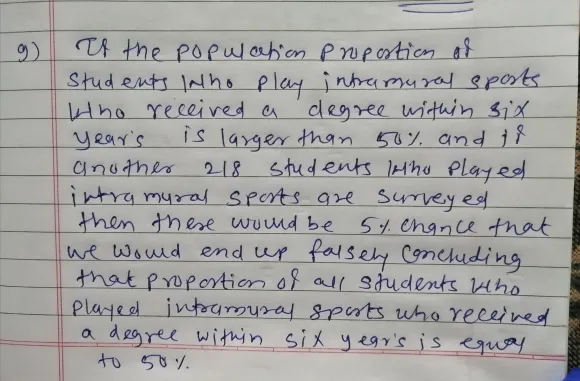 9) If the population proportion of
students who play intramural sports
who received a degree within six
year's is larger than 50% and if
another 218 students who played
intramural sports are surveyed
then there would be 5% chance that
we would end up falsely concluding
that proportion of all students who
played intramural sports who received
a degree within six year's is equal
to 50%.